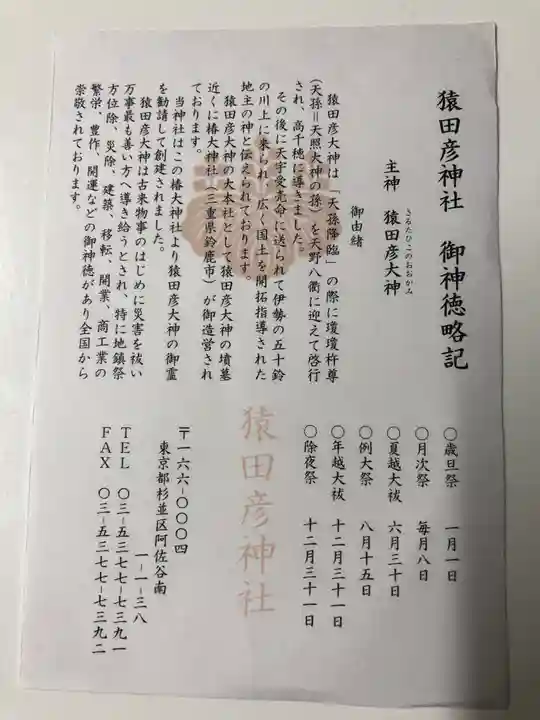 猿田彦神社 御神徳略記
主神 猿田彦大神
さるたひこのおおかみ
御由緒
猿田彦大神は「天孫降臨」の際に瓊瓊杵尊
(天孫=天照大神の孫)を天野八衢に迎えて啓行
され、高千穂に導きました。
その後に天宇受売命に送られて伊勢の五十鈴
の川上に来られ、広く国土を開拓指導された
地主の神と伝えられております。
猿田彦大神の大本社として猿田彦大神の墳墓
近くに椿大神社(三重県鈴鹿市)が御造営され
ております。
当神社はこの椿大神社より猿田彦大神の御霊
を勧請して創建されました。
猿田彦大神は古来物事のはじめに災害を祓い
万事最も善い方へ導き給うとされ、特に地鎮祭
方位除、災除、建築、移転、開業、商工業の
繁栄、豊作、開運などの御神徳があり全国から
崇敬されております。
〇歳旦祭 一月一日
〇月次祭 毎月八日
〇夏越大祓 六月三十日
〇例大祭 八月十五日
〇年越大祓 十二月三十一日
〇除夜祭 十二月三十一日
猿田彦神社
〒一六六-〇〇〇四
東京都杉並区阿佐谷南
一-一-三八
TEL 〇三-五三七七-七三九一
FAX 〇三-五三七七-七三九二